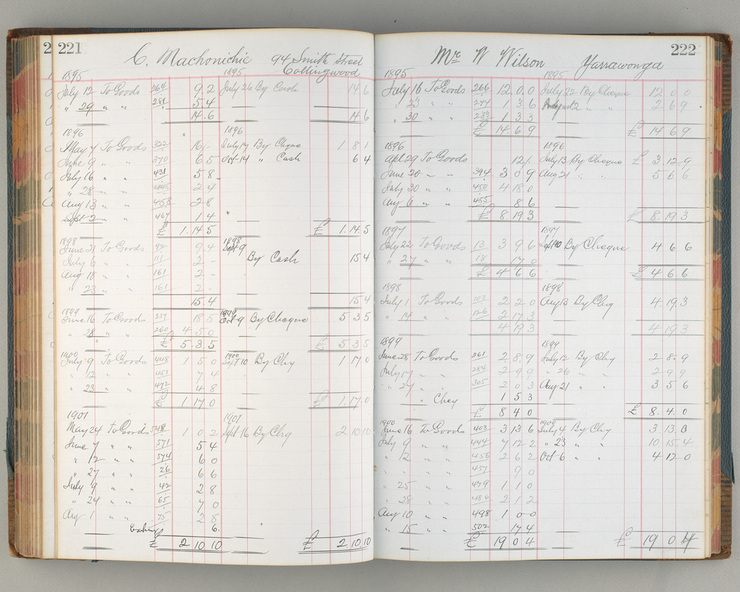 221
C. Machonichie 94 Smith Street
Collingwood
1895 1895
July 13 To Goods 264 9 2 July 26 By Cash 14 6
" 29 " " 281 5 4
14 6 14 6
1896 1896
May 7 To Goods 322 July 17 By Cheque 1 8 1
June 9 " " 370 6 5 Oct 14 " Cash 6 4
July 16 " " 421 5 8
" 28 " " 2 4
Aug 13 " " 455 2 8
Sept 2 " " 467 1 4
£ 1 14 5 £ 1 14 5
1898 1898
June 21 To Goods 9 4 Sept 9
July 6 " " 2 - By Cash 15 4
Aug 18 " " 161 2 -
" 23 " " 161 2 -
15 4 15 4
1899
June 16 To Goods 18 5 Oct 9 By Cheque 5 3 5
" 28 " " 260 4 5 0
£ 5 3 5 £ 5 3 5
1900 1900
July 9 To Goods 448 1 5 0 Sept 10 By Chq 1 17 0
" 12 " " 7 4
" 23 " " 472 4 8
£ 1 17 0 £ 1 17 0
1901 1901
May 24 To Goods 548 1 0 2 Sept 16 By Chq 2 10 10
June 7 " " 571 5 4
" 12 " " 574 6 0
" 27 " " 26 6 6
July 9 " " 42 2 8
" 24 " " 65 7 0
Aug 1 " " 75 2 8
Exchange 6
£ 2 10 10 £ 2 10 10
222
Mr W Wilson Yarrawonga
1895 1895
July 16 To Goods 266 12 0 0 July 22 By Cheque 12 0 0
" 23 " " 274 1 3 6 2 6 9
" 30 " " 283 1 3 3
£ 14 6 9 £ 14 6 9
1896 1896
Apl 29 To Goods 12 July 13 By Cheque £ 3 12 9
June 26 " " 394 3 0 9 Aug 21 " " 5 6 6
July 30 " " 450 4 18 0
Aug 6 " " 455 8 6
£ 8 19 3 £ 8 19 3
1897 1897
July 22 To Goods 13 3 9 6 Sept 10 By Cheque 4 6 6
" 27 " " 18 17 0
£ 4 6 6 £ 4 6 6
1898 1898
July 1 To Goods 2 2 0 Aug 13 By Chq 4 19 3
" 14 " " 2 17 3
4 19 3 4 19 3
1899 1899
June 28 To Goods 261 2 8 9 July 12 By Chq 2 8 9
July 17 " " 284 2 9 9 " 26 " " 2 9 9
" 27 " " 305 2 0 3 Aug 21 " " 3 5 6
" Chq 1 5 3
£ 8 4 0 £ 8 4 0
1900 1900
June 16 To Goods 403 3 13 6 July 4 By Chq 3 13 0
July 9 " " 444 7 12 2 " 23 " " 10 15 4
" 12 " " 458 2 6 2 Oct 6 " " 4 12 0
" " " 457 9 0
" 25 " " 479 1 1 0
" 28 " " 484 2 1 2
Aug 10 " " 498 1 0 0
" 15 " " 502 17 4
£ 19 0 4 £ 19 0 4